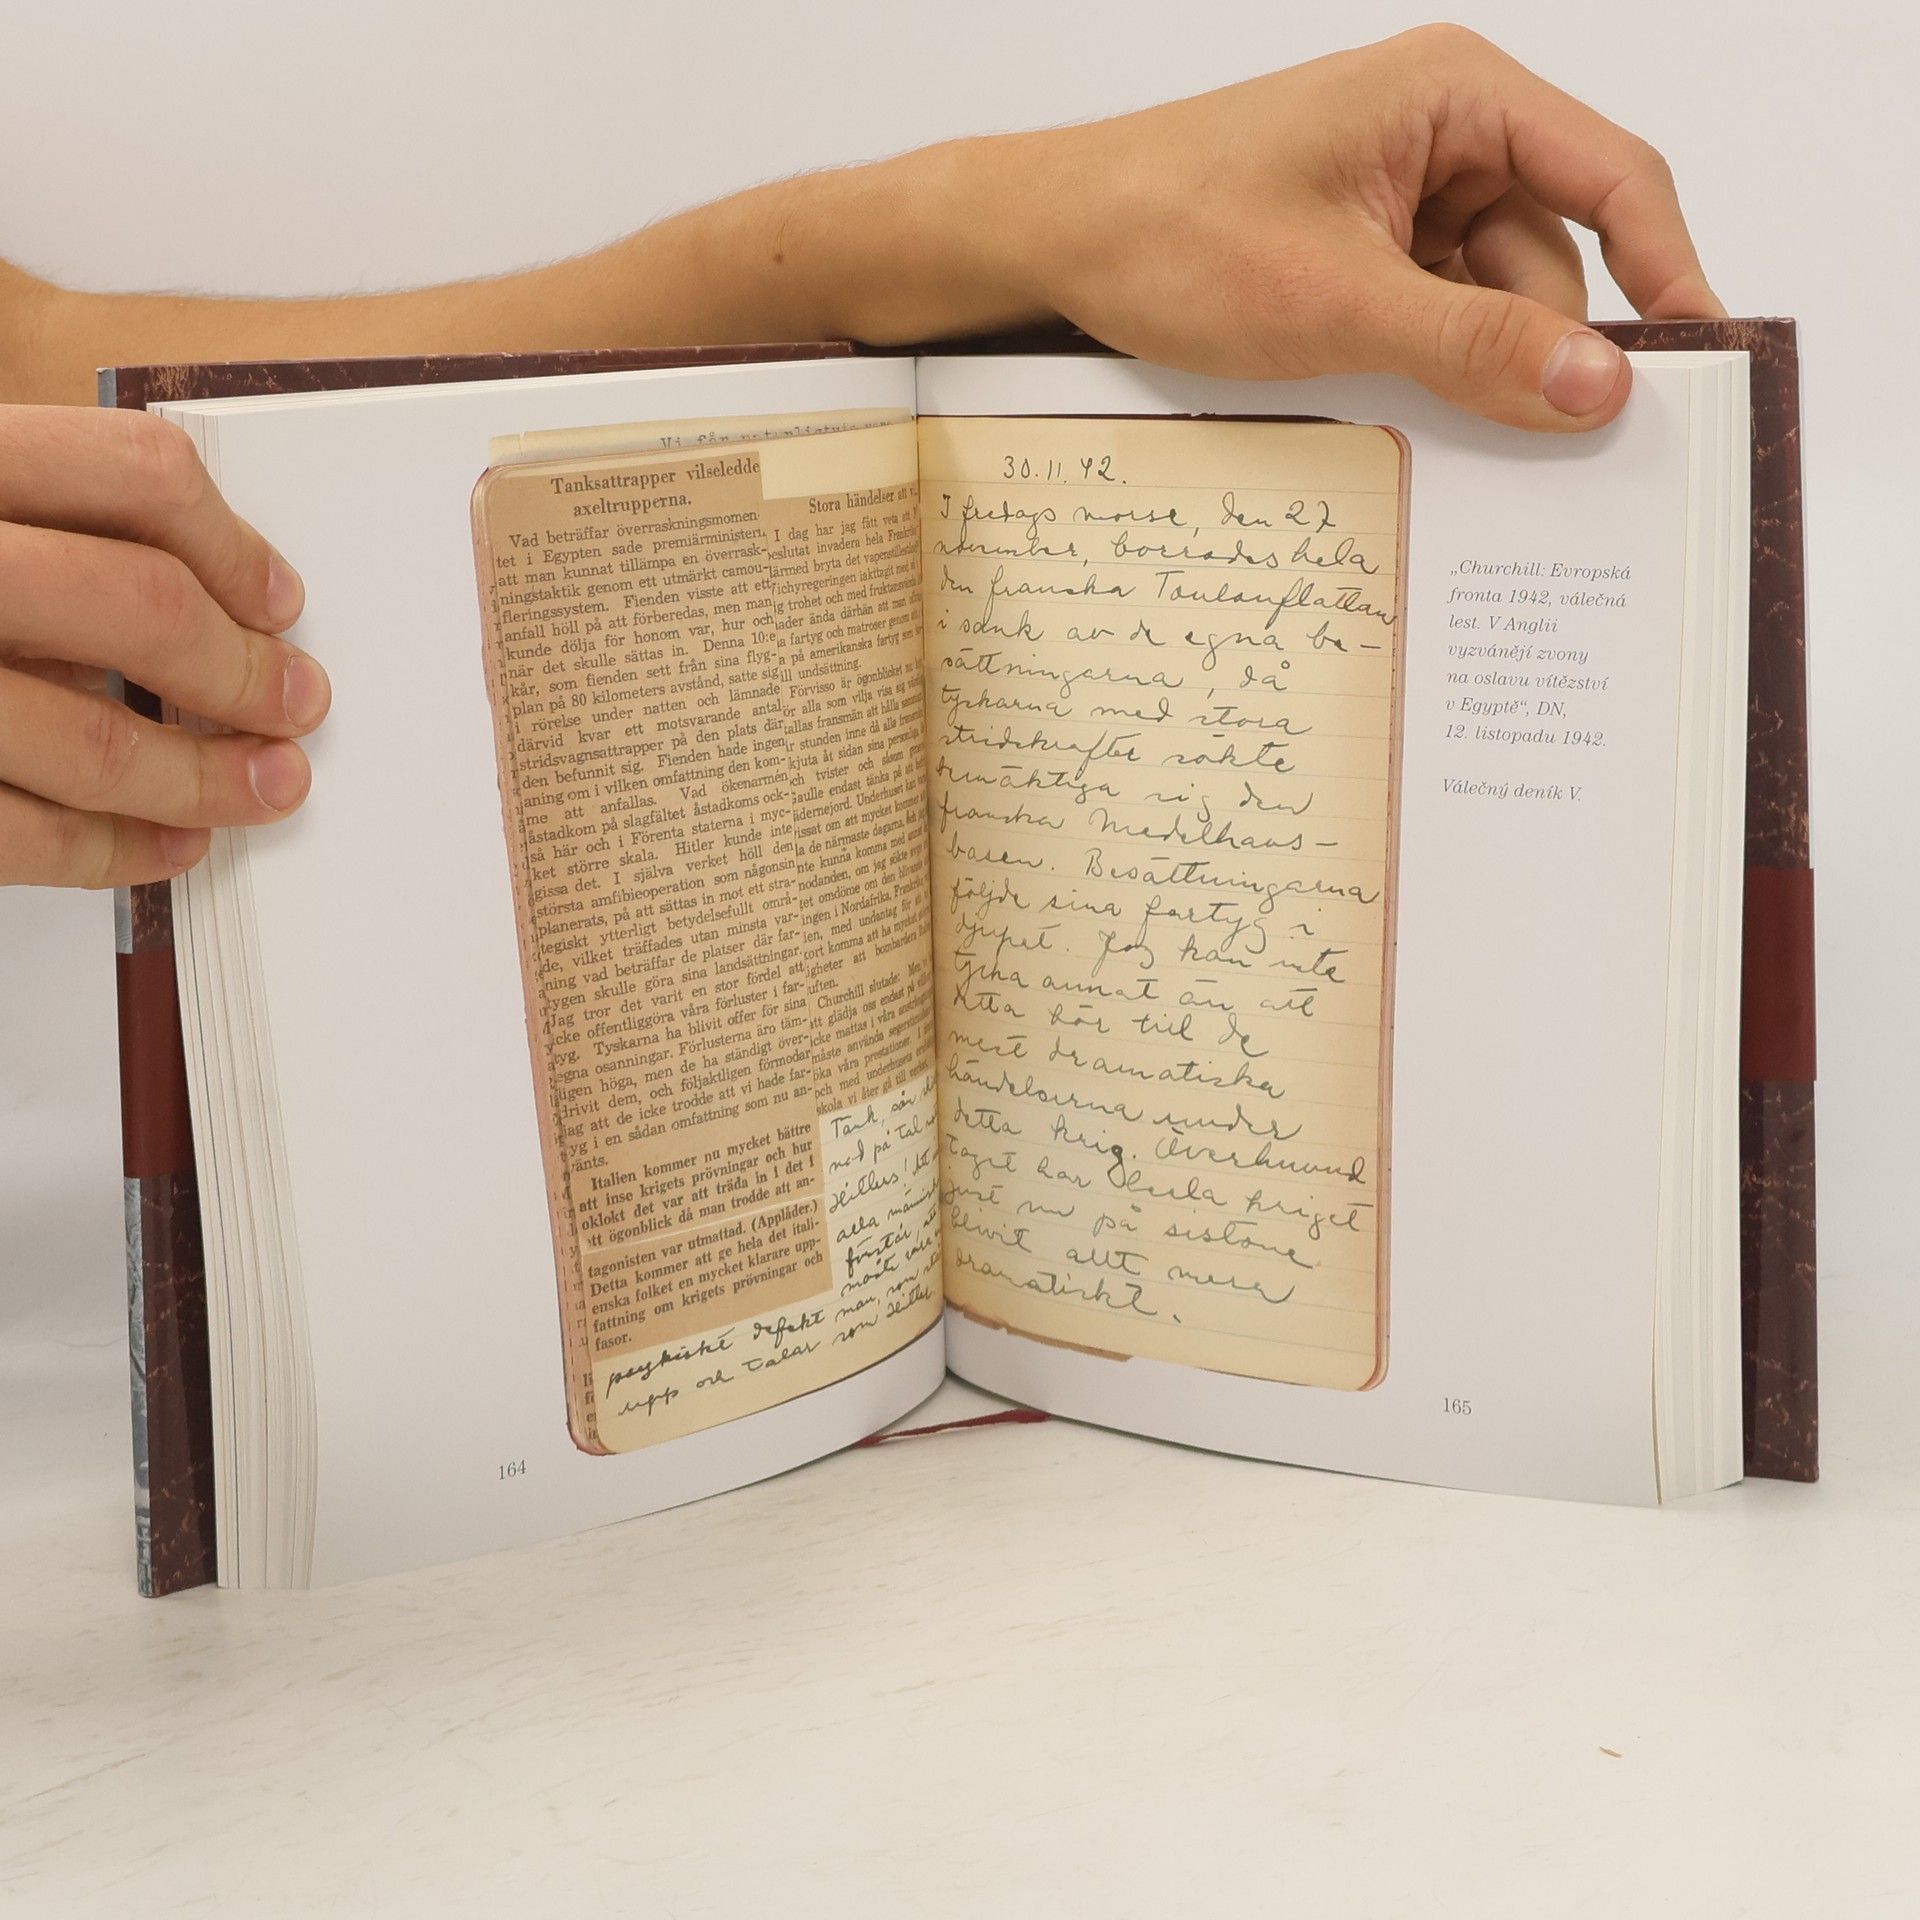 Tanksattrapper vilseledde
axeltrupperna.
Vad beträffar överraskningsmomen-
tet i Egypten sade premiärministern,
att man kunnat tillämpa en överrask-
ningstaktik genom ett utmärkt camou-
fleringssystem. Fienden visste att ett
anfall höll på att förberedas, men man
kunde dölja för honom var, hur och
när det skulle sättas in. Denna 10:e
kår, som fienden sett från sina flyg-
plan på 80 kilometers avstånd, satte sig
i rörelse under natten och lämnade
därvid kvar ett motsvarande antal
stridsvagnsattrapper på den plats där
den befunnit sig. Fienden hade ingen
aning om i vilken omfattning den kom-
me att anfallas. Vad ökenarmén
åstadkom på slagfältet åstadkoms ock-
så här och i Förenta staterna i myc-
ket större skala. Hitler kunde inte
gissa det. I själva verket höll den
största amfibieoperation som någonsin
planerats, på att sättas in mot ett stra-
tegiskt ytterligt betydelsefullt områ-
de, vilket träffades utan minsta var-
ning vad beträffar de platser där far-
tygen skulle göra sina landsättningar.
Jag tror det varit en stor fördel att
icke offentliggöra våra förluster i far-
tyg. Tyskarna ha blivit offer för sina
egna osanningar. Förlusterna äro täm-
ligen höga, men de ha ständigt över-
drivit dem, och följaktligen förmodar
jag att de icke trodde att vi hade far-
tyg i en sådan omfattning som nu an-
vänts.
Italien kommer nu mycket bättre
att inse krigets prövningar och hur
oklokt det var att träda in i det i
ett ögonblick då man trodde att an-
tagonisten var utmattad. (Applåder.)
Detta kommer att ge hela det itali-
enska folket en mycket klarare upp-
fattning om krigets prövningar och
fasor.
Stora händelser att
I dag har jag fått veta att
beslutat invadera hela Frankrike
därmed bryta det vapenstillestånd
Vichyregeringen iakttagit med
ig trohet och med fruktansvärda
ända därhän att man
a fartyg och matroser genom att
a på amerikanska fartyg som
till undsättning.
Förvisso är ögonblicket nu
för alla som vilja visa sig värdiga
kallas fransmän att hålla samman
stunden inne då alla fransmän
skjuta åt sidan sina personliga
och tvister och såsom general
Gaulle endast tänka på att befria
fädernejord. Underhuset kan vara
vissat om att mycket kommer att
de närmaste dagarna, och jag
inte kunna komma med
nodanden, om jag sökte
get omdöme om den blivande
ingen i Nordafrika, Frankrike
ien, med undantag för att
fort komma att ha mycket större
igheter att bombardera Italien
luften.
Churchill slutade: Men vi
att glädja oss endast på villkor
icke mattas i våra ansträngningar
måste använda segerstämningen
öka våra prestationer. I denna
och med underhusets
skola vi åter gå till verket.
Tänk, sån
nad på tal
Hitlers!
alla människor
förstår, att
måste vara
psykiskt defekt man, som
upp och talar som Hitler.
30.11.42.
I fredags morse, den 27
november, borrades hela
den franska Toulonflottan
i sank av de egna be-
sättningarna, då
tyskarna med stora
stridskrafter sökte
bemäktiga sig den
franska Medelhavs-
basen. Besättningarna
följde sina fartyg i
djupet. Jag kan inte
tycka annat än att
detta hör till de
mest dramatiska
händelserna under
detta krig. Överhuvud
taget har hela kriget
just nu på sistone
blivit allt mera
dramatiskt.
„Churchill: Evropská
fronta 1942, válečná
lest. V Anglii
vyzvánějí zvony
na oslavu vítězství
v Egyptě“, DN,
12. listopadu 1942.
Válečný deník V.
164
165